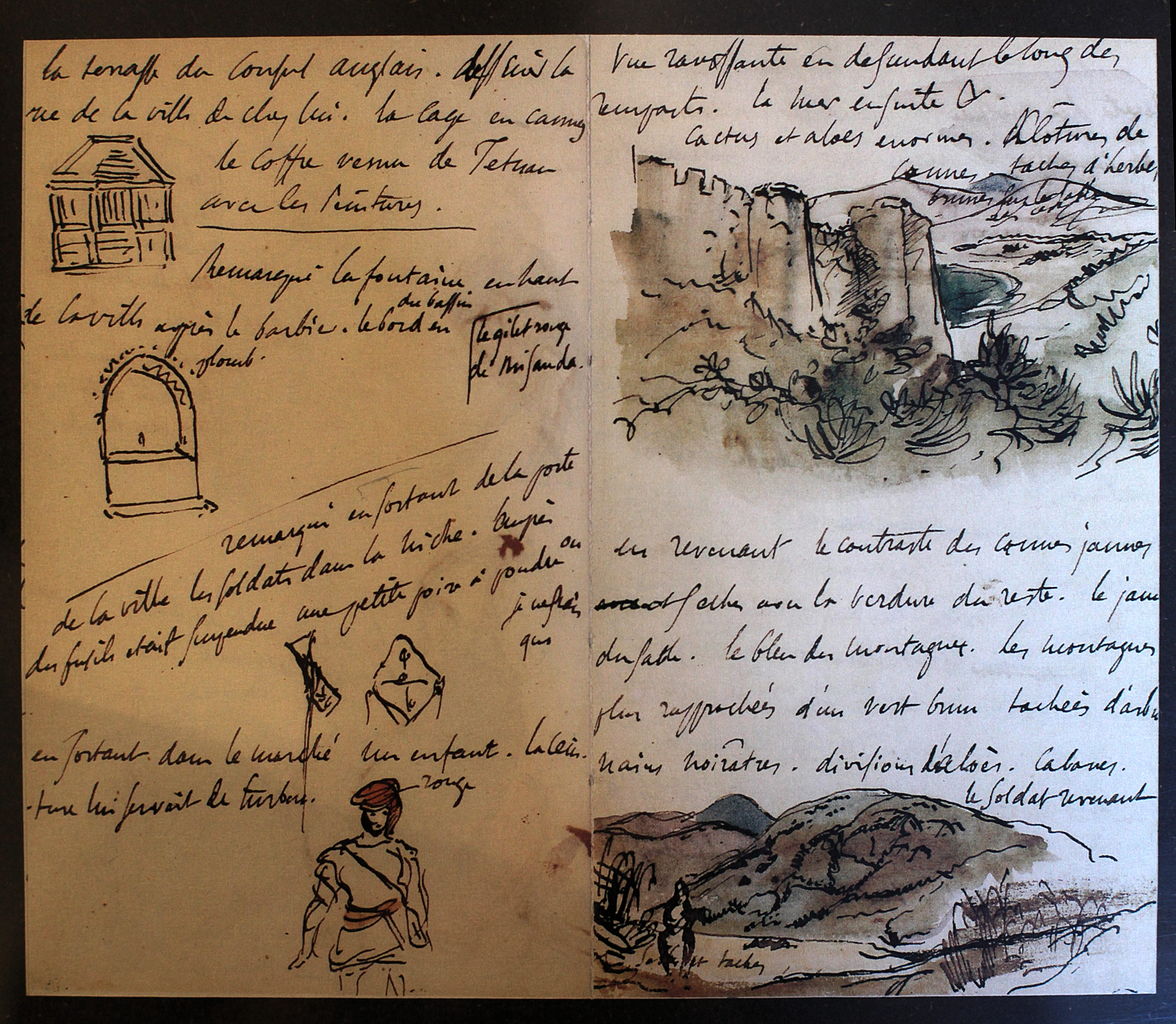 la terrasse du Consul anglais. dessiné la
vue de la ville de chez lui. la cage en cannes
le coffre venu de Tetuan
avec les peintures.
Remarqué la fontaine en haut
de la ville après le barbier. le bord en
du bassin
plomb.
le gilet rouge
de
remarqué en sortant de la porte
de la ville les soldats dans la niche. Auprès
des fusils etait suspendue une petite poire à poudre ou
je ne sais
quoi
en sortant dans le marché un enfant. la cein-
-ture lui servait de turban.
rouge
vue ravissante en descendant le long des
remparts. la mer ensuite &.
cactus et aloes enormes. Clotures de
cannes. taches d'herbes
brunes sur le sable
en revenant le contraste des cannes jaunes
seches avec la verdure du reste. le jaune
du sable. le bleu des montagnes. les montagnes
plus rapprochées d'un vert brun tachées d'arbres
nains noirâtres. divisions d'aloès. Cabanes.
le soldat revenant
et taches